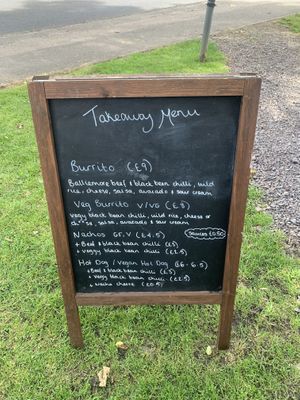 Takeaway Menu
Burrito (£9)
Balliemore beef & black bean chilli, wild
rice, cheese, salsa, avocado & sour cream
Veg Burrito V/VG (£8)
Veggy black bean chilli, wild rice, cheese or
salsa, avocado & sour cream
Nachos GF, V (£4.5)
+ Beef & black bean chilli
+ Veggy black bean chilli (£2.5)
Hot Dog / Vegan Hot Dog (£6 - 6.5)
+ Beef & black bean chilli (£3)
+ Veggy black bean chilli (£2.5)
+ Nacho cheese (£0.5)